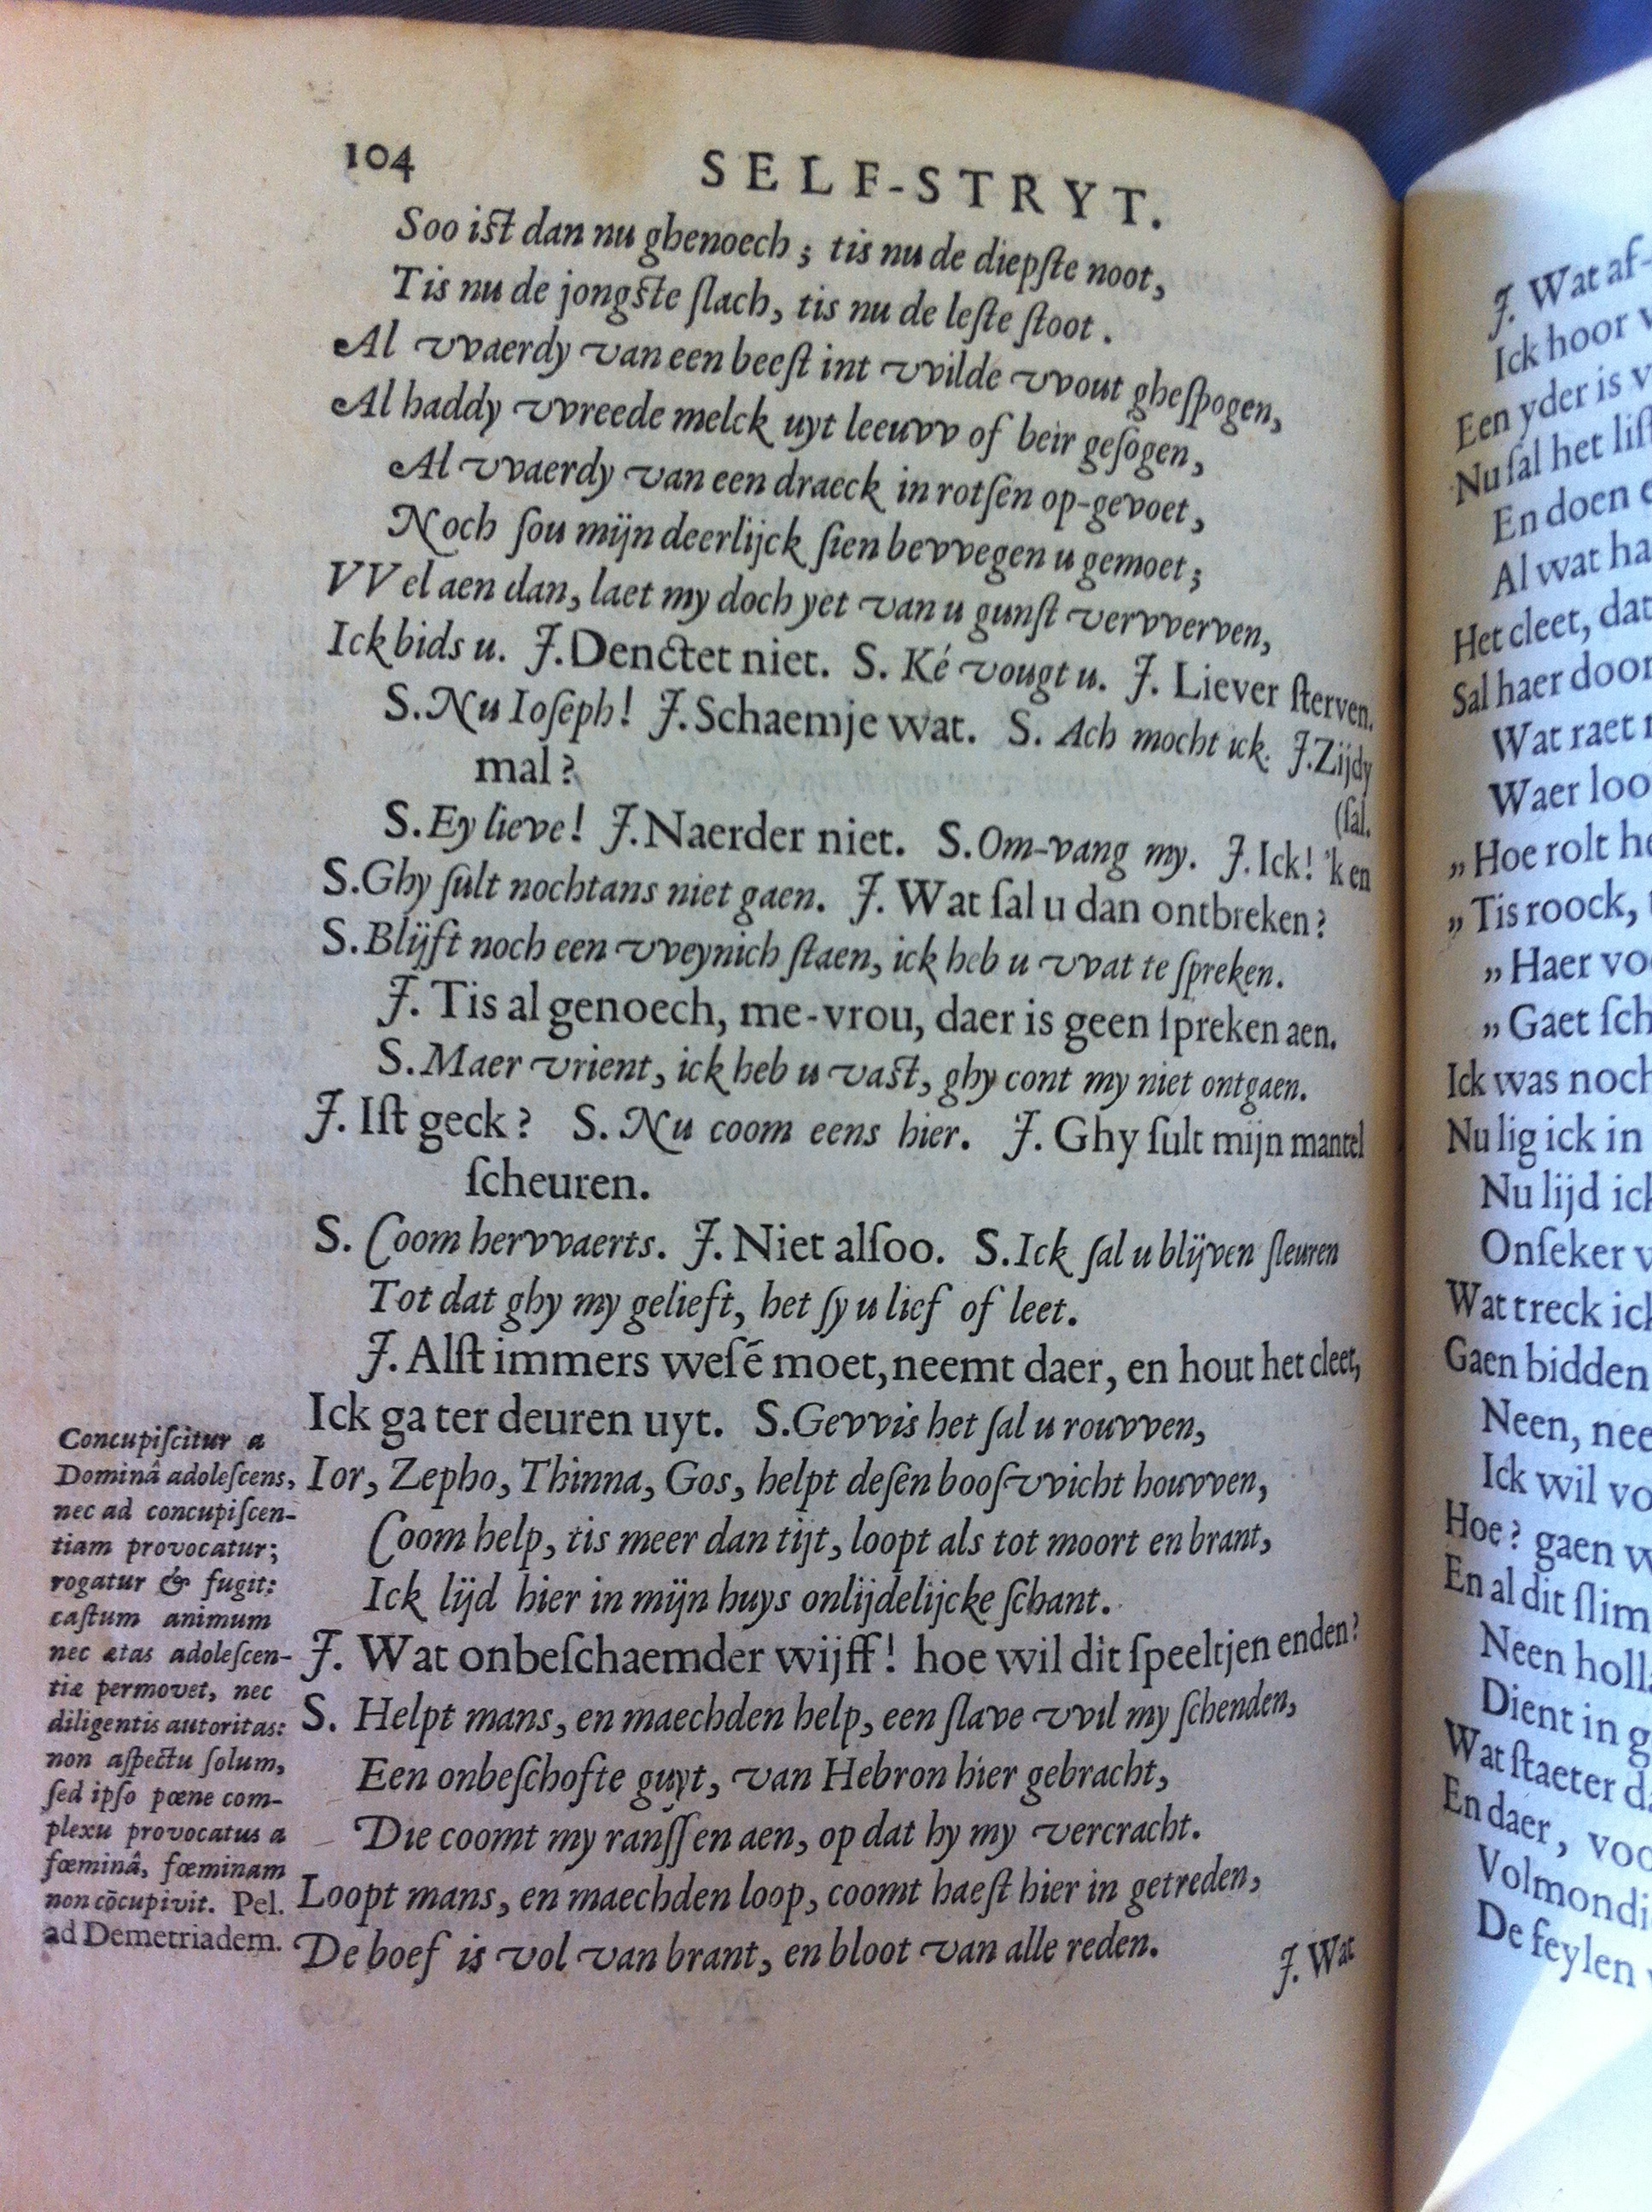 104
SELF-STRYT.
Soo ist dan nu ghenoech; tis nu de diepſte noot,
Tis nu de jongste ſlach, tis nu de leſte ſtoot.
Al vvaerdy van een beeſt int vvilde vvout gheſpogen,
Al haddy vvreede melck uyt leeuvv of beir geſogen,
Al vvaerdy van een draeck in rotſen op-gevoet,
Noch ſou mijn deerlijck ſien bevvegen u gemoet;
VVel aen dan, laet my doch yet van u gunſt vervverven,
Ick bids u. J. Denctet niet. S. Ké vougt u. J. Liever ſterven.
S. Nu Ioſeph! J. Schaemje wat. S. Ach mocht ick. J. Zijdy
mal?
(ſal.
S. Ey lieve! J. Naerder niet. S. Om-vang my. J. Ick! 'k en
S. Ghy ſult nochtans niet gaen. J. Wat ſal u dan ontbreken?
S. Blijft noch een vveynich ſtaen, ick heb u vvat te ſpreken.
J. Tis al genoech, me-vrou, daer is geen ſpreken aen.
S. Maer vrient, ick heb u vast, ghy cont my niet ontgaen.
J. Iſt geck? S. Nu coom eens hier. J. Ghy ſult mijn mantel
ſcheuren.
S. Coom hervvaerts. J. Niet alſoo. S. Ick ſal u blijven ſleuren
Tot dat ghy my gelieft, het ſy u lief of leet.
J. Alſt immers weſē moet, neemt daer, en hout het cleet,
Ick ga ter deuren uyt. S. Gevvis het ſal u rouvven,
Ior, Zepho, Thinna, Gos, helpt deſen booſvvicht houvven,
Coom help, tis meer dan tijt, loopt als tot moort en brant,
Ick lijd hier in mijn huys onlijdelijcke ſchant.
J. Wat onbeſchaemder wijff! hoe wil dit ſpeeltjen enden?
S. Helpt mans, en maechden help, een ſlave vvil my ſchenden,
Een onbeſchofte guyt, van Hebron hier gebracht,
Die coomt my ranſſen aen, op dat hy my vercracht.
Loopt mans, en maechden loop, coomt haeſt hier in getreden,
De boef is vol van brant, en bloot van alle reden.
J. Wat
Concupiſcitur a
Dominâ adoleſcens,
nec ad concupiſcen-
tiam provocatur;
rogatur & fugit:
caſtum animum
nec ætas adoleſcen-
tiæ permovet, nec
diligentis autoritas:
non aſpectu ſolum,
ſed ipſo pœne com-
plexu provocatus a
fœminâ, fœminam
non cōcupivit. Pel.
ad Demetriadem.
J. Wat af-
Ick hoor
Een yder is
Nu ſal het
En doen
Al wat
Het cleet, dat
Sal haer door
Wat raet
Waer
„Hoe rolt
„Tis roock,
„Haer
„Gaet
Ick was noch
Nu lig ick in
Nu lijd
Onſeker
Wat treck
Gaen bidden
Neen,
Ick wil
Hoe? gaen
En al dit
Neen
Dient in
Wat ſtaeter
En daer,
De feylen